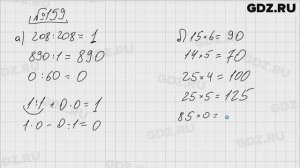 GDZ.RU
№159
а) 208:208=1
890:1=890
0:60=0
1:1+0·0=1
1·0-0:1=0
б) 15×6=90
14×5=70
25×4=100
25×5=125
85×0=